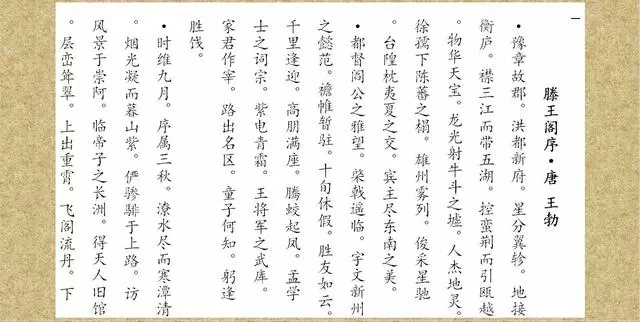 一
滕王阁序•唐 王勃
•豫章故郡。洪都新府。星分翼轸。地接
衡庐。襟三江而带五湖。控蛮荆而引瓯越
。物华天宝。龙光射牛斗之墟。人杰地灵。
徐孺下陈蕃之榻。雄州雾列。俊采星驰
。台隍枕夷夏之交。宾主尽东南之美。
•都督阎公之雅望。棨戟遥临。宇文新州
之懿范。襜帷暂驻。十旬休假。胜友如云。
千里逢迎。高朋满座。腾蛟起凤。孟学
士之词宗。紫电青霜。王将军之武库。
家君作宰。路出名区。童子何知。躬逢
胜饯。
•时维九月。序属三秋。潦水尽而寒潭清
。烟光凝而暮山紫。俨骖騑于上路。访
风景于崇阿。临帝子之长洲。得天人旧馆
。层峦耸翠。上出重霄。飞阁流丹。下